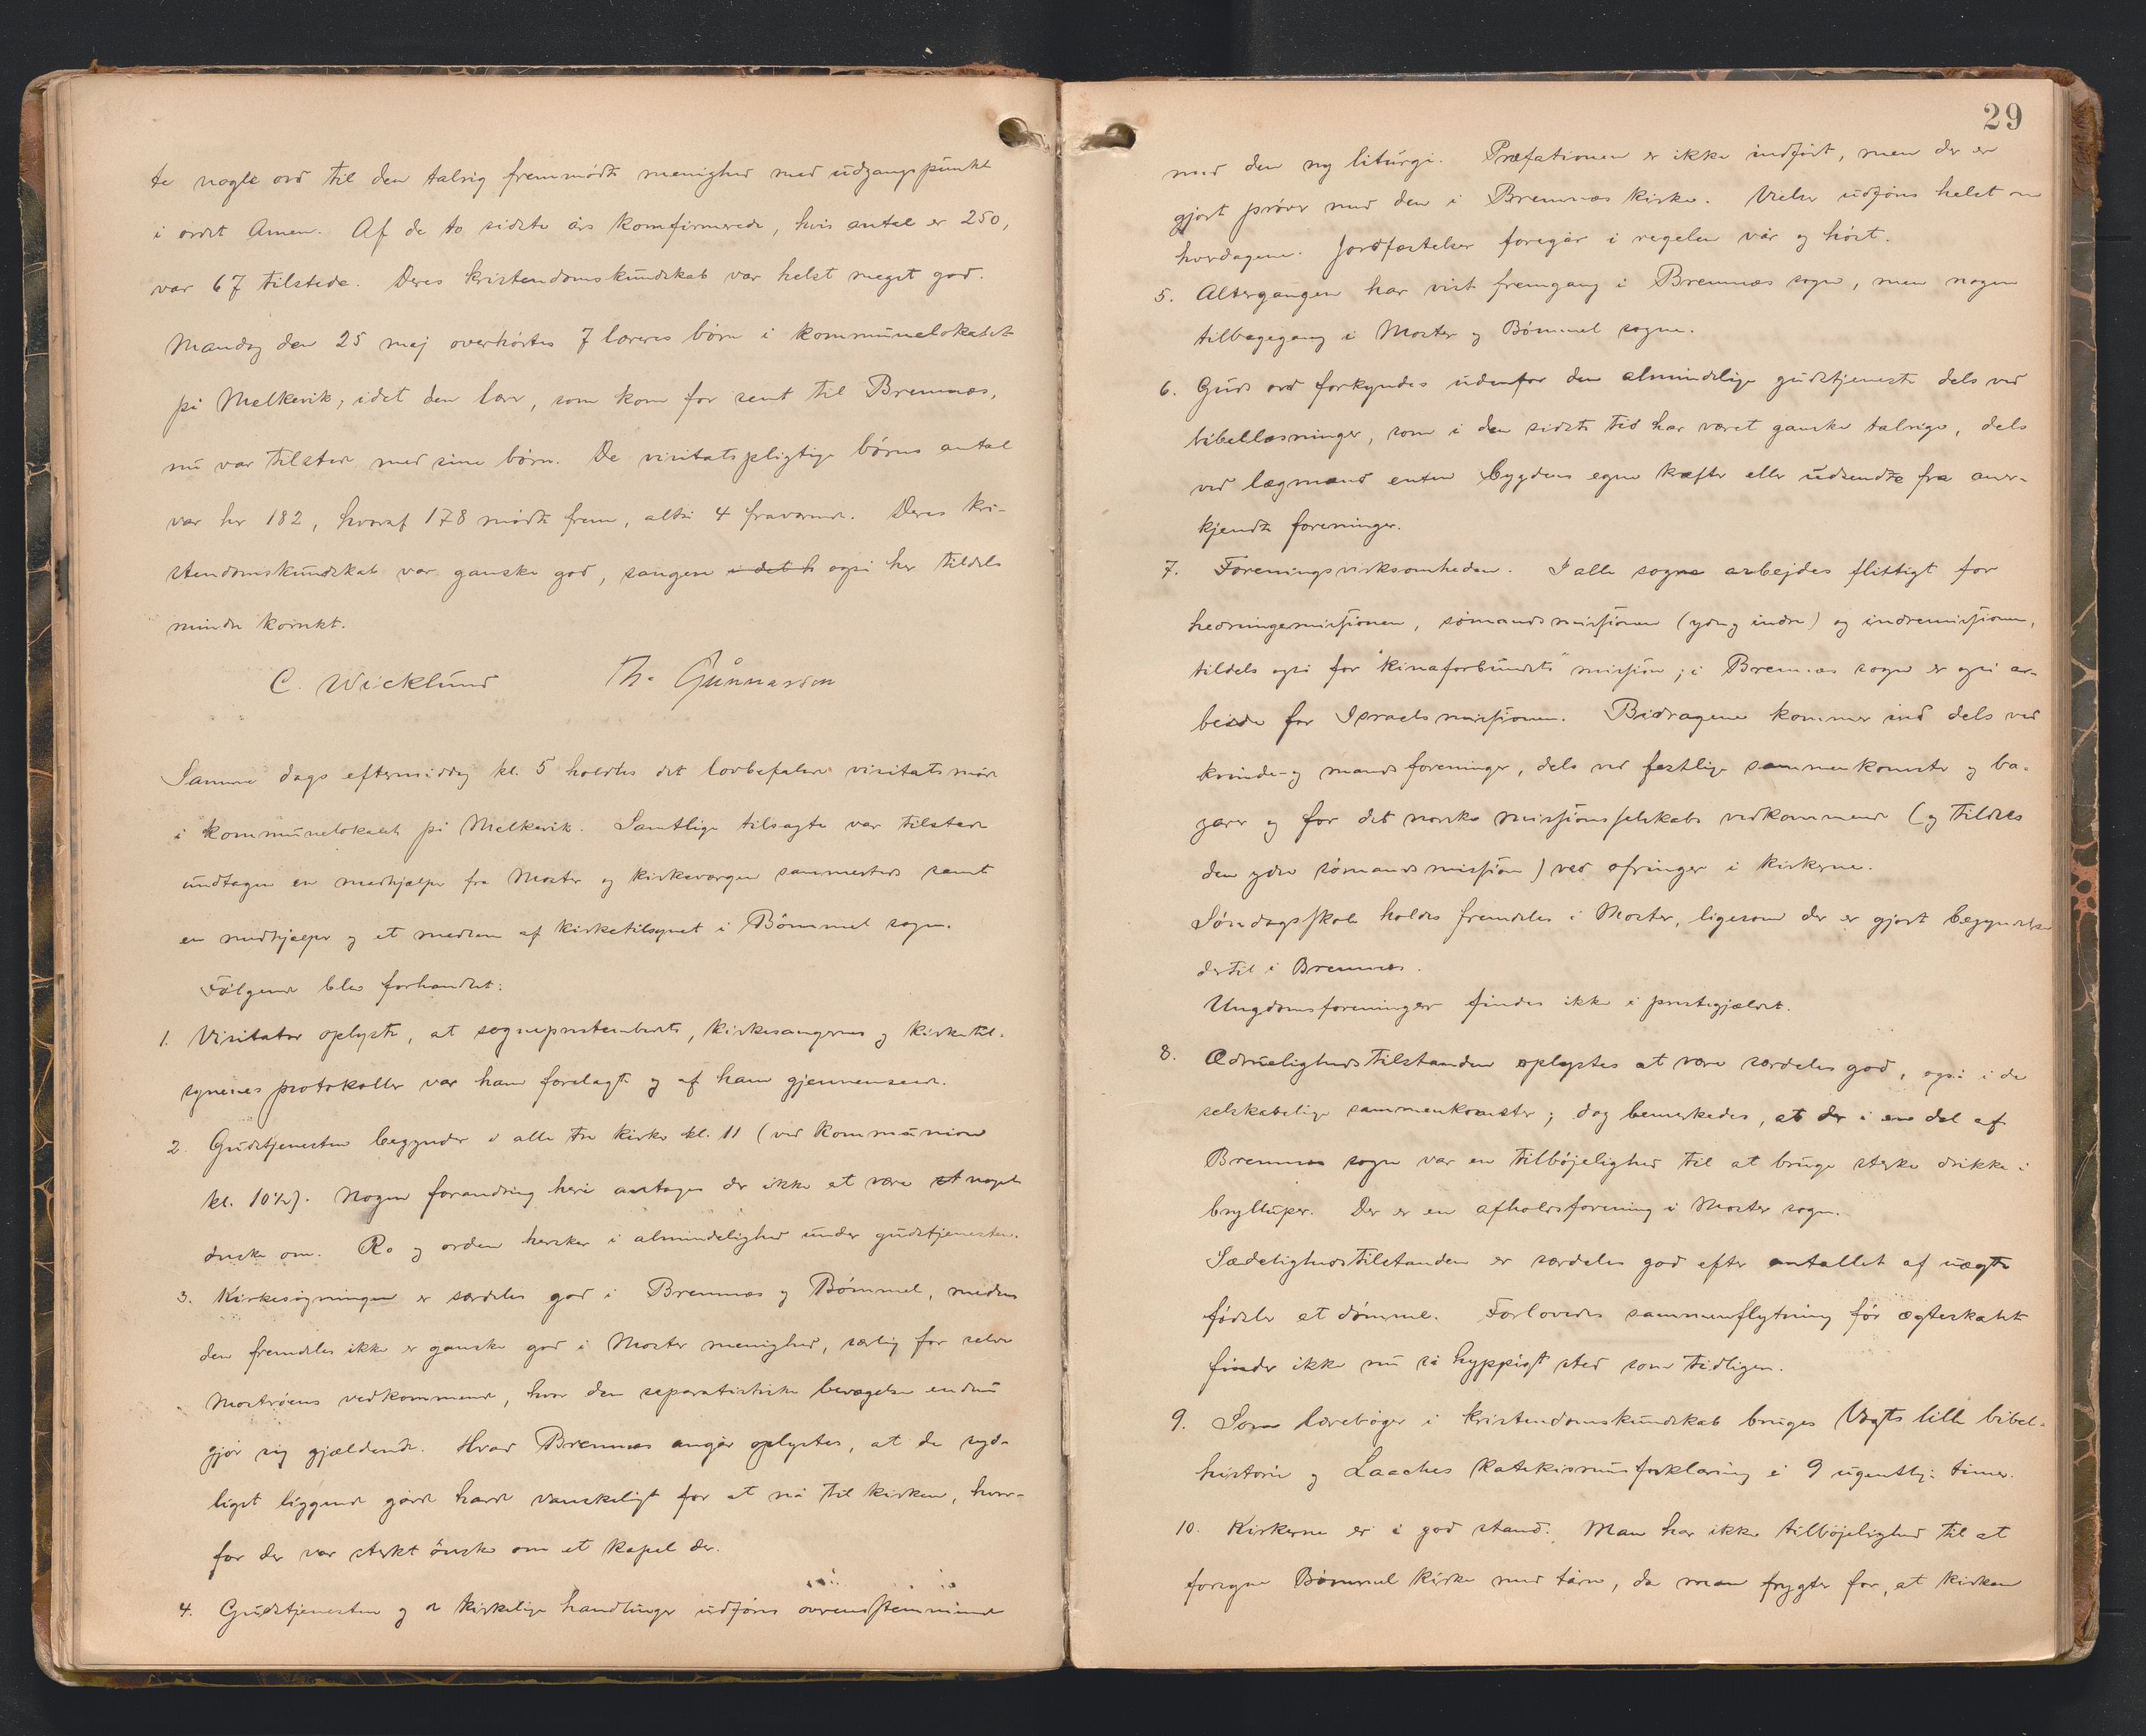 te nogle ord til den talrig fremmødte menighed med udgangspunkt
i ordet Amen. Af de to sidste års komfirmerede, hvis antal er 250,
var 67 tilstede. Deres kristendomskundskab var helst meget god.
Mandag den 25 maj overhørtes 7 læreres børn i kommunelokalet
på Melkevik, idet den lærer, som kom for sent til Bremnæs,
nu var tilstede med sine børn. De visitatspligtige børns antal
var her 182, hvoraf 178 mødte frem, altså 4 fraværende. Deres kri-
stendomskundskab var ganske god, sangen i det h også her tildels
mindre korrekt.
C. Wicklund Th. Gunnarson
Samme dags eftermiddag kl. 5 holdtes det lovbefalede visitatsmøde
i kommunelokalet på Melkevik. Samtlige tilsagte var tilstede
undtagen en medhjælper fra Moster og kirkeværgen sammesteds samt
en medhjælper og et medlem af kirketilsynet i Bømmel sogn.
Følgende blev forhandlet:
1. Visitator oplyste, at sogneprestembedets, kirkesangernes og kirketil-
synenes protokoller var ham forelagt og af ham gjennemseede.
2. Gudstjenesten begynder i alle tre kirker kl. 11 (ved kommunion
kl. 10½). Nogen forandring heri antages der ikke at være et noget
ønske om. Ro og orden hersker i almindelighed under gudstjenesten.
3. Kirkesøgningen er særdeles god i Bremnæs og Bømmel, medens
den fremdeles ikke er ganske god i Moster menighed, særlig for selve
Mostrøens vedkommende, hvor den separatistiske bevægelse endnu
gjør sig gjældende. Hvad Bremnæs angår oplystes, at de syd-
ligst liggende gårde havde vanskeligt for at nå til kirken, hvor-
for der var sterkt ønske om et kapel der.
4. Gudstjenesten og de kirkelige handlinger udføres overensstemmende
29
med den ny liturgi. Præfationen er ikke indført, men der er
gjort prøver med den i Bremnæs kirke. Vielser udføres helst om
hverdagene. Jordfæstelser foregår i regelen vår og høst.
5. Altergangen har vist fremgang i Bremnæs sogn, men nogen
tilbagegang i Moster og Bømmel sogne.
6. Guds ord forkyndes udenfor den almindelige gudstjeneste dels ved
bibellæsninger, som i den sidste tid har været ganske talrige, dels
ved lægmænd enten bygdens egne kræfter eller udsendte fra aner-
kjendte foreninger.
7. Foreningsvirksomheden. I alle sogne arbejdes flittigt for
hedningemissionen, sømandsmissionen (ydre og indre) og indremissionen,
tildels også for "kinaforbundets" mission; i Bremnæs sogn er også ar-
beide for Israelsmissionen. Bidragene kommer ind dels ved
kvinde- og mandsforeninger, dels ved festlige sammenkomster og ba-
zarer og for det norske missionsselskabs vedkommende (og tildels
den ydre sømandsmission) ved ofringer i kirkerne.
Søndagsskole holdes fremdeles i Moster, ligesom der er gjort begyndelse
dertil i Bremnæs.
Ungdomsforeninger findes ikke i prestegjældet.
8. Ædruelighedstilstanden oplystes at være særdeles god, også i de
selskabelige sammenkomster; dog bemerkedes, at der i en del af
Bremnæs sogn var en tilbøjelighed til at bruge sterke drikke i
bryllupper. Der er en afholdsforening i Moster sogn.
Sædelighedstilstanden er særdeles god efter antallet af uægte
fødsler at dømme. Forlovedes sammenflytning før ægteskabet
finder ikke nu så hyppigt sted som tidligere.
9. Som lærebøger i kristendomskundskab bruges Vogts lille bibel-
historie og Laaches katekismusforklaring i 9 ugentlige timer.
10. Kirkerne er i god stand. Man har ikke tilbøjelighed til at
forsyne Bømmel kirke med tårn, da man frygter for, at kirken